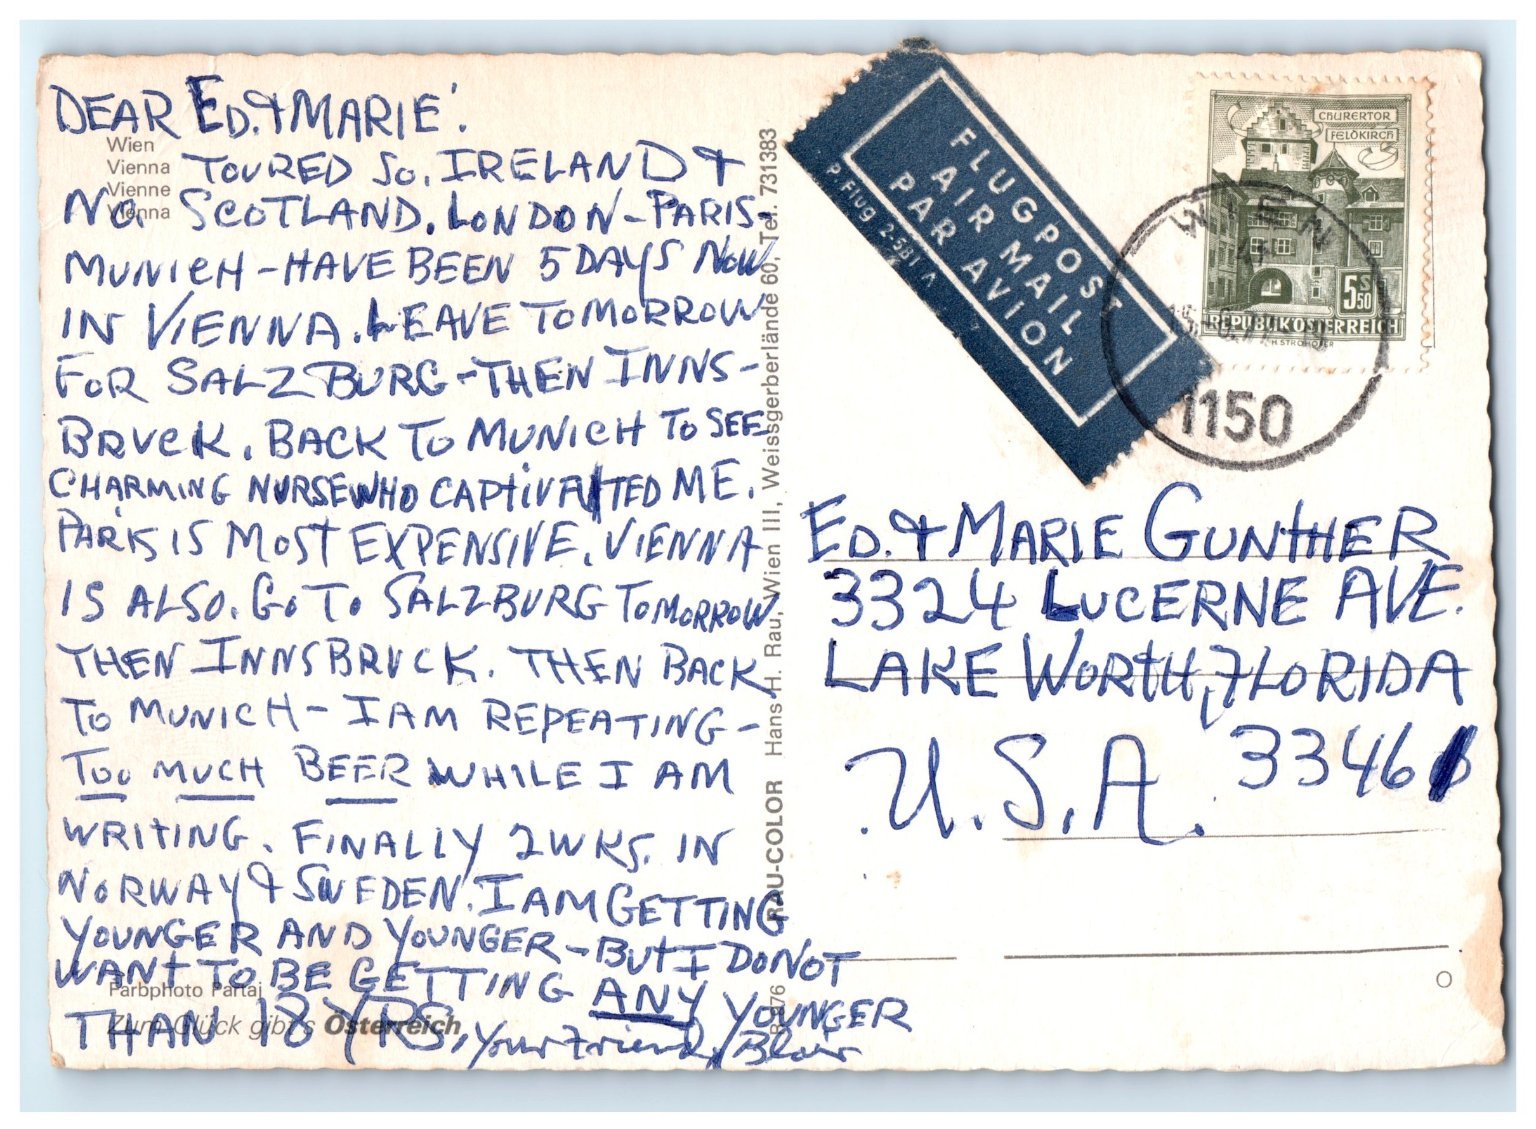 DEAR ED. & MARIE:
Wien
Vienna
Vienne
Vienna
TOURED SO. IRELAND &
NO. SCOTLAND. LONDON - PARIS -
MUNICH - HAVE BEEN 5 DAYS NOW
IN VIENNA. LEAVE TOMORROW
FOR SALZBURG - THEN INNS-
BRUCK. BACK TO MUNICH TO SEE
CHARMING NURSE WHO CAPTIVATED ME.
PARIS IS MOST EXPENSIVE. VIENNA
IS ALSO. GO TO SALZBURG TOMORROW
THEN INNSBRUCK. THEN BACK
TO MUNICH - I AM REPEATING -
TOO MUCH BEER WHILE I AM
WRITING. FINALLY 2 WKS. IN
NORWAY & SWEDEN. I AM GETTING
YOUNGER AND YOUNGER - BUT I DO NOT
WANT TO BE GETTING ANY YOUNGER
THAN 18 YRS, Your Friend, Blair
Farbphoto Partaj
Zum Glück gibt's Österreich
RAU-COLOR Hans H. Rau, Wien III, Weissgerberlände 60, Tel. 731383
FLUGPOST
AIR MAIL
PAR AVION
P. Flug 2-5BT
CHURERTOR
FELDKIRCH
5 S 50
REPUBLIK OSTERREICH
H. STROHOFER
WIEN
1150
ED. & MARIE GUNTHER
3324 LUCERNE AVE.
LAKE WORTH, FLORIDA
U.S.A. 33461